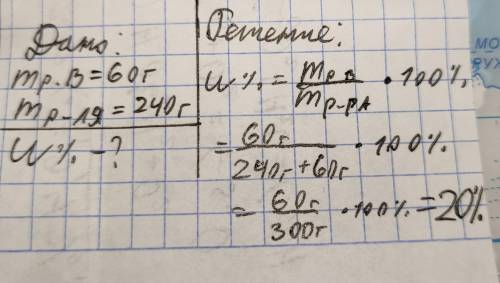 Дано:
mр.в = 60г
mр-ля = 240г
W% - ?
Решение:
W% = mр.в / mр-ра • 100%
= 60г / 240г+60г • 100%
= 60г / 300г • 100% = 20%
МО